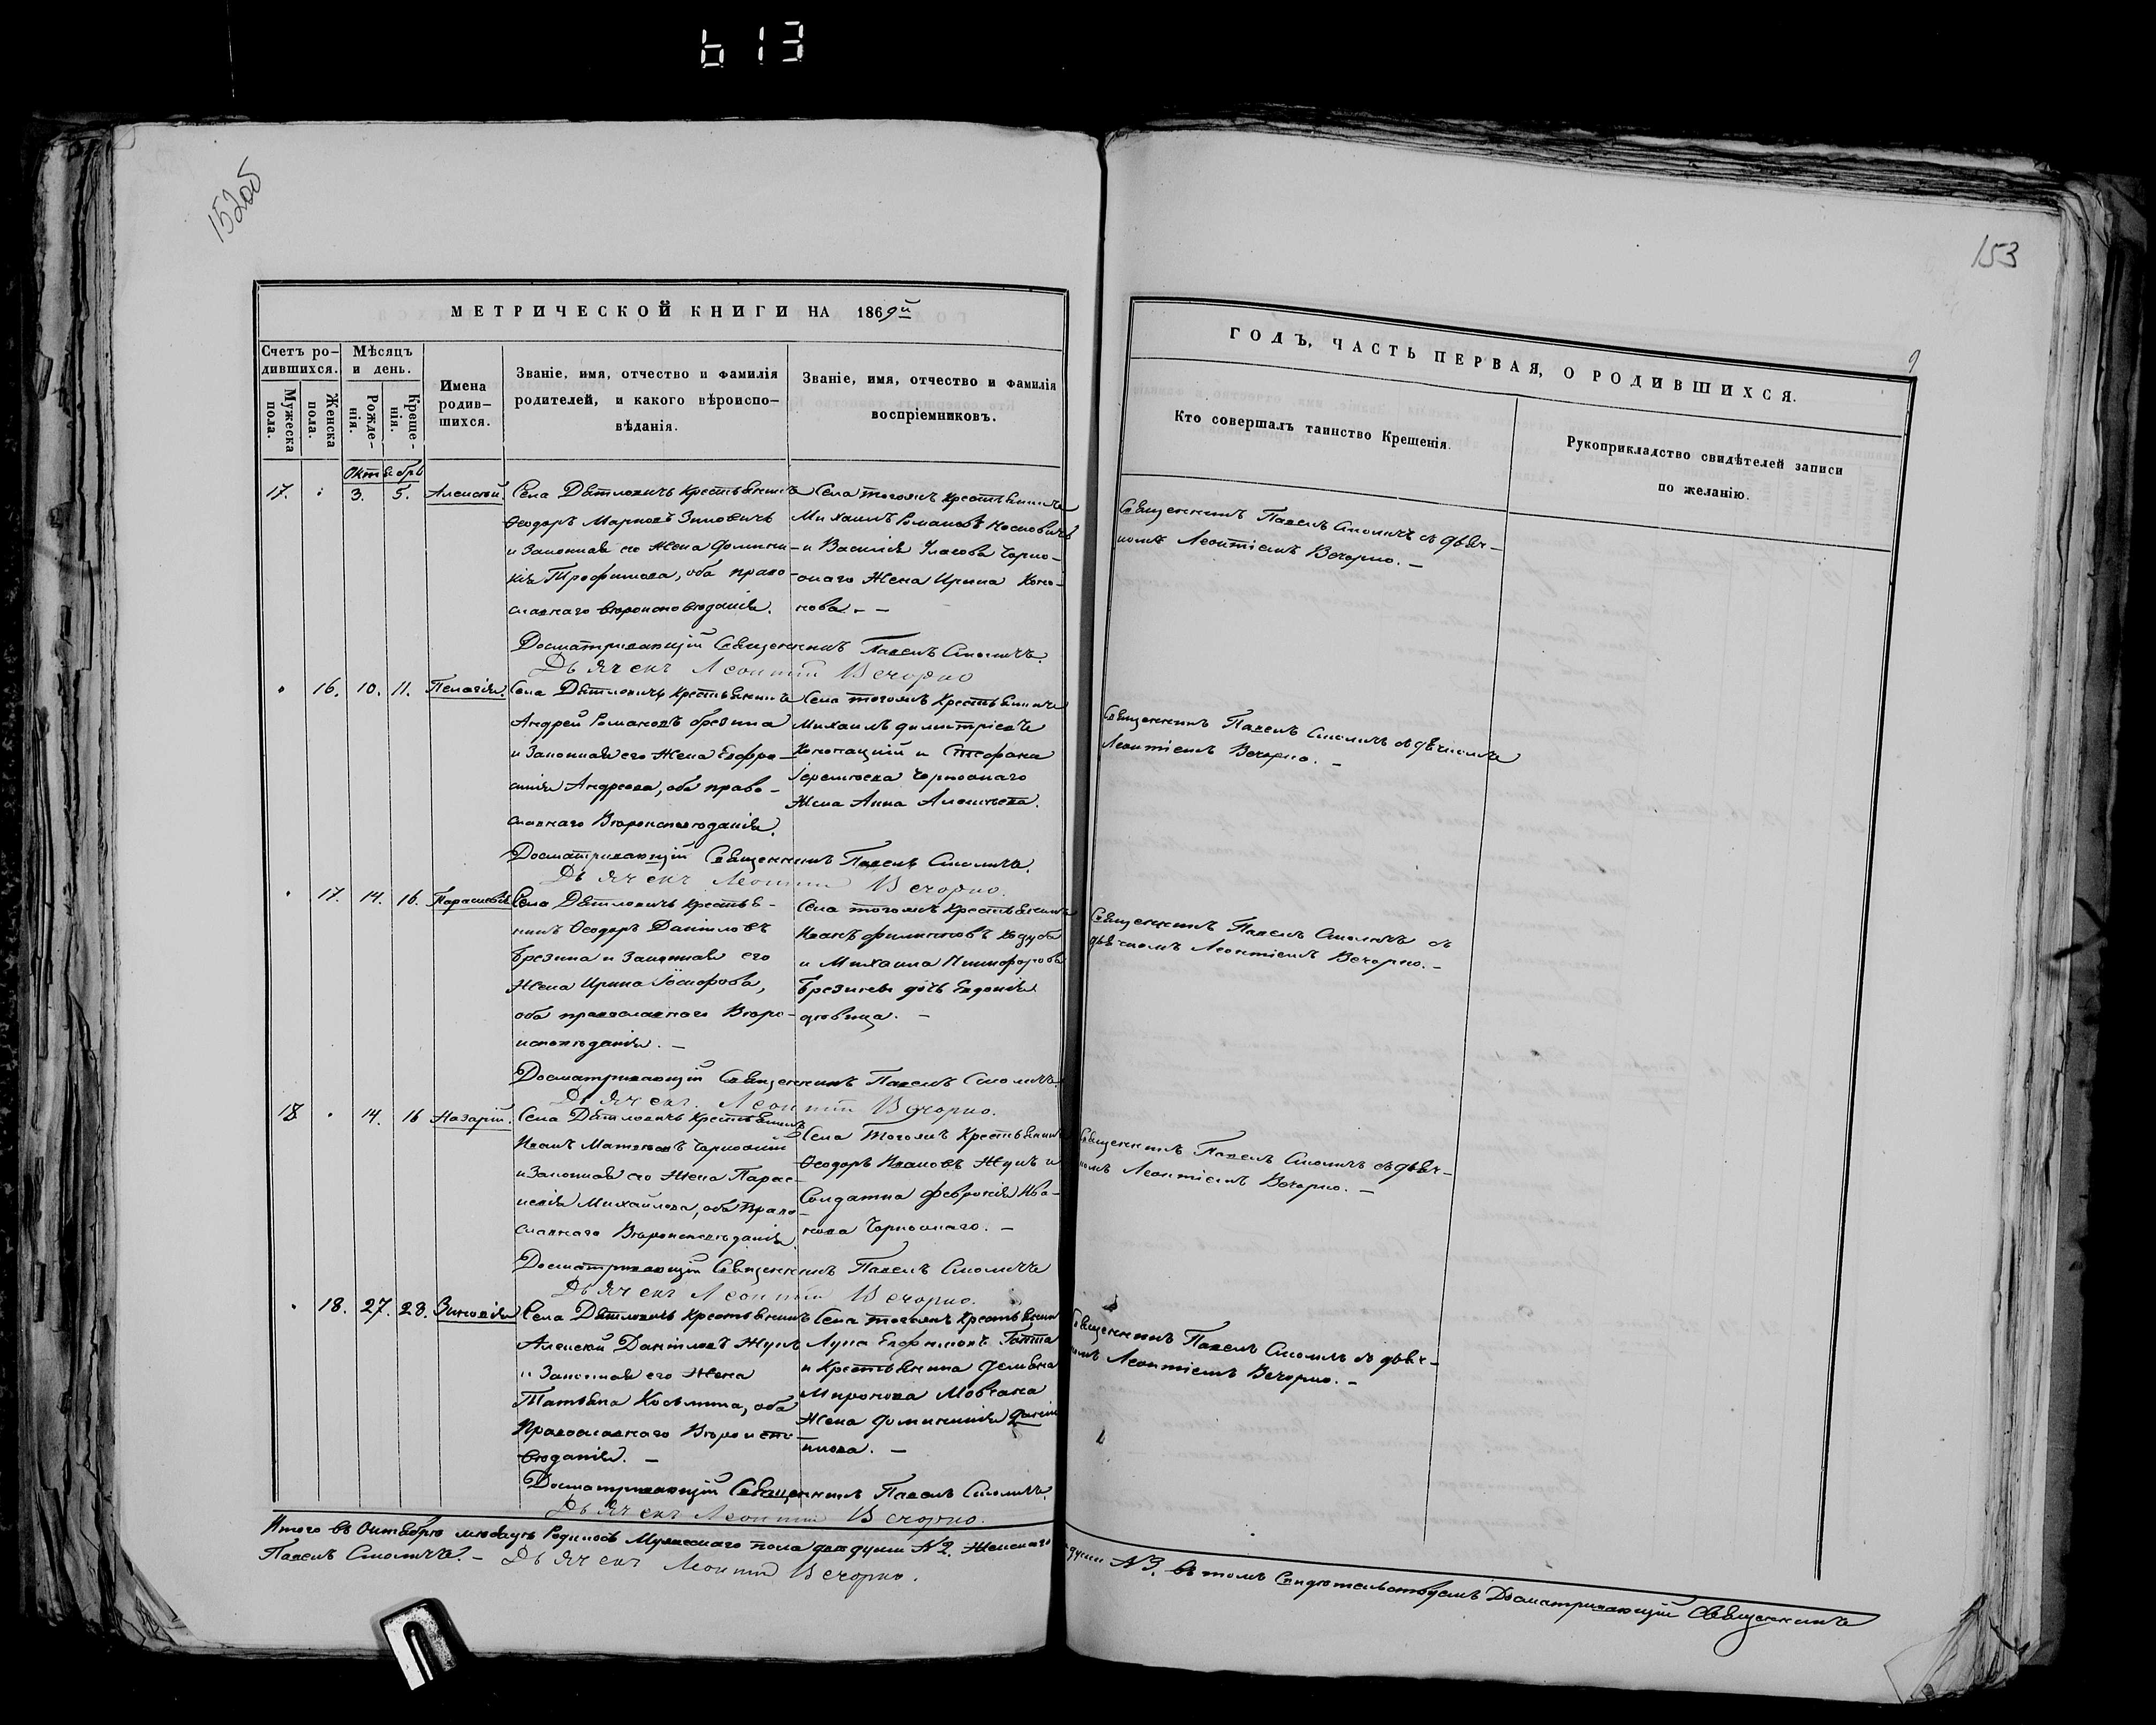 613
152об
153
МЕТРИЧЕСКОЙ КНИГИ НА 1869й
Счетъ ро-
дившихся.
Мѣсяцъ
и день.
Мужеска
пола.
Женска
пола.
Рожде-
нія.
Креще-
нія.
Имена
родив-
шихся.
Званіе, имя, отчество и фамилія
родителей, и какого вѣроиспо-
вѣданія.
Званіе, имя, отчество и фамилія
воспріемниковъ.
ГОДЪ, ЧАСТЬ ПЕРВАЯ, О РОДИВШИХСЯ.
9
Кто совершалъ таинство Крещенія.
Рукоприкладство свидѣтелей записи
по желанію.
Октябрь
17. 3. 5. Алексѣй.
Села Дѣтловичъ Крестьянинъ
Ѳеодоръ Марковъ Зиновичъ
и Законная его Жена Доминики-
кія Трофимова, оба право-
славнаго вѣроисповѣданія.
Села тогожъ Крестьянинъ
Михаилъ Романовъ
и Василія Власова Чорно-
окаго Жена Ирина Коно-
нова. –
Священникъ Павелъ Смоличъ съ дьяч-
комъ Леонтіемъ Вечорко. –
Досматривающій Священникъ Павелъ Смоличъ.
Дьячекъ Леонтій Вечорко
16. 10. 11. Пелагія.
Села Дѣтловичъ Крестьянинъ
Андрей Романовъ Брезина
и Законная его Жена Евфро-
синія Андреева, оба право-
славнаго Вѣроисповѣданія.
Села тогожъ Крестьянинъ
Михаилъ Димитріевъ
Конопацкій и Стефана
Іеремѣева Чорноокаго
Жена Анна Алексѣева.
Священникъ Павелъ Смоличъ съ дьячкомъ
Леонтіемъ Вечорко. –
Досматривающій Священникъ Павелъ Смоличъ.
Дьячекъ Леонтій Вечорко.
17. 14. 16. Параскевія
Села Дѣтловичъ Крестья-
нинъ Ѳеодоръ Даніиловъ
Брезина и Законная его
Жена Ирина
оба православнаго Вѣро-
исповѣданія. –
Села тогожъ Крестьянинъ
Иванъ Филипповъ Кодуба
и Михаила Никифорова
Брезины дочь Евдокія
дѣвица. –
Священникъ Павелъ Смоличъ съ
дьячкомъ Леонтіемъ Вечорко. –
Досматривающій Священникъ Павелъ Смоличъ.
Дьячекъ Леонтій Вечорко.
18 14. 16 Назарій.
Села Дѣтловичъ Крестьянинъ
Иванъ Матвѣевъ Чорноокій
и Законная его Жена Парас-
кевія Михайлова, оба Право-
славнаго Вѣроисповѣданія.
Села Тогожъ Крестьянинъ
Ѳеодоръ Ивановъ Жукъ и
Солдатка Февронія Ива-
нова Чорноокаго. –
Священникъ Павелъ Смоличъ съ дьяч-
комъ Леонтіемъ Вечорко. –
Досматривающій Священникъ Павелъ Смоличъ
Дьячекъ Леонтій Вечорко.
18. 27. 28. Зиновія
Села Дѣтловичъ Крестьянинъ
Алексѣй Даніиловъ Жукъ
и Законная его Жена
Татьяна Косьмина, оба
Православнаго Вѣроиспо-
вѣданія. –
Села тогожъ Крестьянинъ
Лука Евфимовъ Гапта
и Крестьянина Демьяна
Миронова Мовчана
Жена Доминикія Даніи-
илова. –
Священникъ Павелъ Смоличъ съ дьяч-
комъ Леонтіемъ Вечорко. –
Досматривающій Священникъ Павелъ Смоличъ.
Дьячекъ Леонтій Вечорко.
Итого въ Октябрѣ мѣсяцѣ Родилось Мужескаго пола двѣ души № 2. Женскаго души № 3. въ томъ Свидѣтельствуемъ Досматривающій Священникъ
Павелъ Смоличъ. – Дьячекъ Леонтій Вечорко.